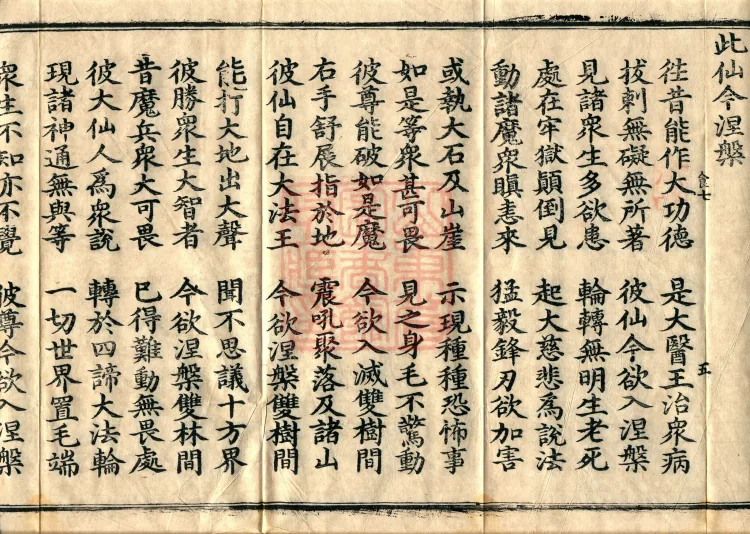 此仙今涅槃
食七 五
徃昔能作大功德 是大醫王治衆病
拔刺無礙無所著 彼仙今欲入涅槃
見諸衆生多欲患 輪轉無明生老死
處在牢獄顛倒見 起大慈悲爲說法
動諸魔衆瞋恚來 猛毅鋒刃欲加害
或執大石及山崖 示現種種恐怖事
如是等衆甚可畏 見之身毛不驚動
彼尊能破如是魔 今欲入滅雙樹間
右手舒展指於地 震吼聚落及諸山
彼仙自在大法王 今欲涅槃雙樹間
能打大地出大聲 聞不思議十方界
彼勝衆生大智者 今欲涅槃雙林間
昔魔兵衆大可畏 已得難動無畏處
彼大仙人爲衆說 轉於四諦大法輪
現諸神通無與等 一切世界置毛端
衆生不知亦不覺 彼尊今欲入涅槃